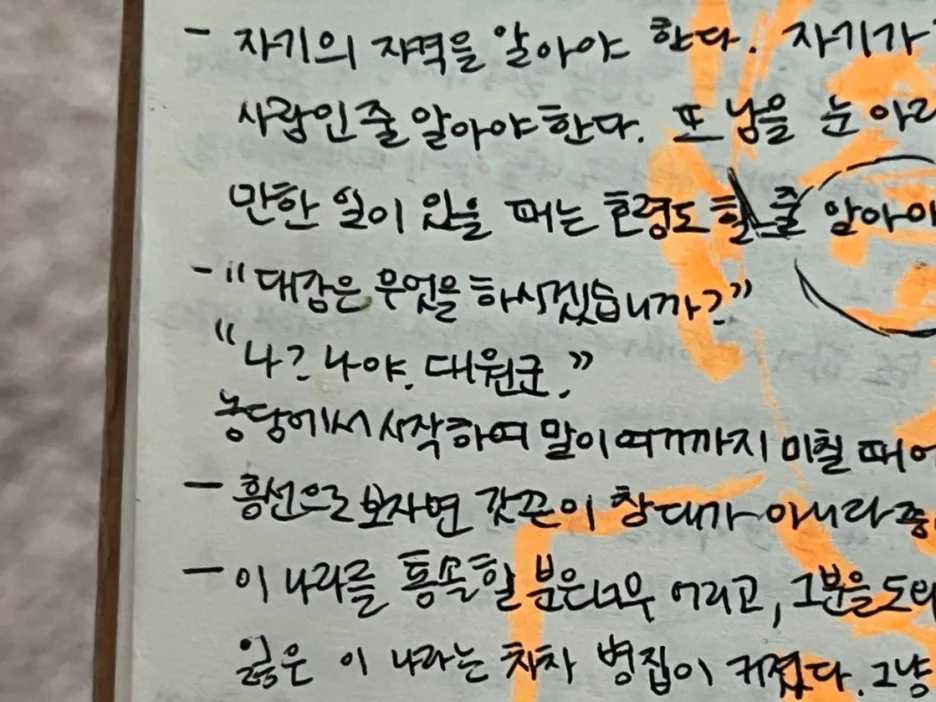 - 자기의 자격을 알아야 한다. 자기가
사람인 줄 알아야 한다. 또 남을 눈 아래
만한 일이 있을 때는 호령도 할 줄 알아야
- "대감은 무엇을 하시겠습니까?"
"나? 나야. 대원군."
농담에서 시작하여 말이 여기까지 미칠 때에
- 흥선으로 보자면 갓끈이 창대가 아니라 중
- 이 나라를 통솔할 분은 너무 어리고, 그분을 도와
잃은 이 나라는 차차 병집이 커졌다. 그냥